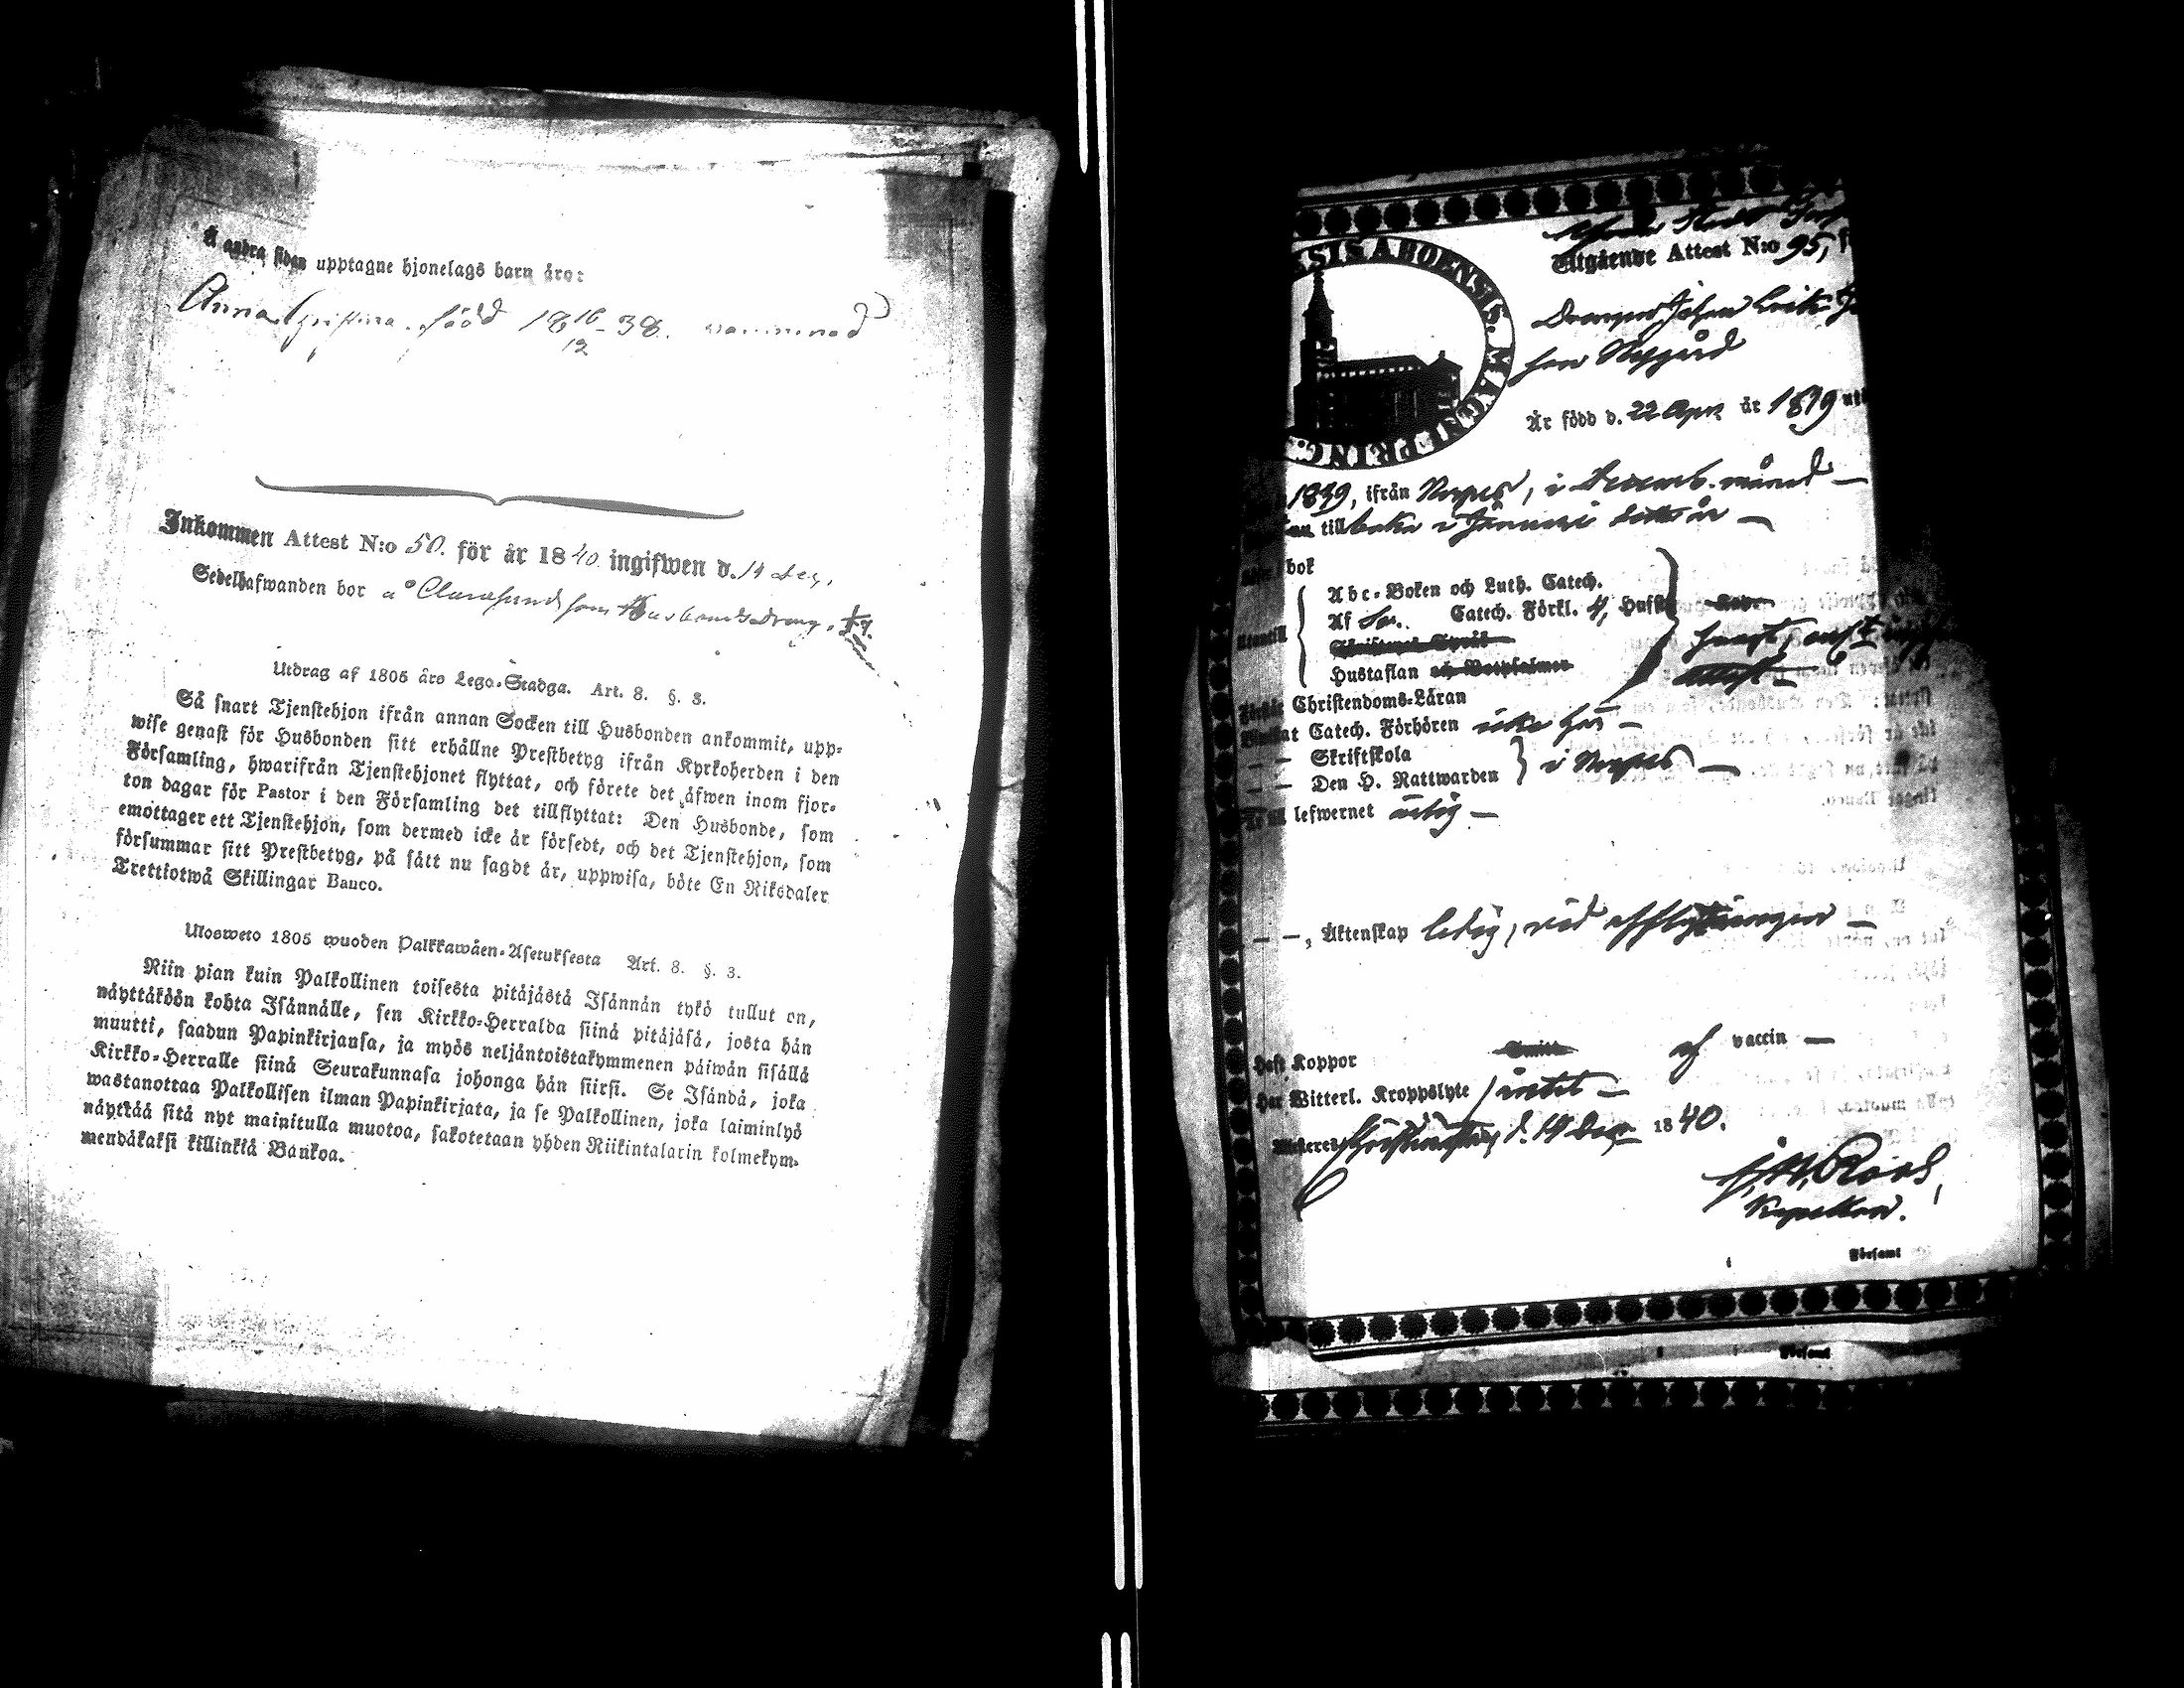 Å andra sidan upptagne hjonelags barn äro:
Anna Christina född 18 16/12 38. vaccinerad
Inkommen Attest N:o 50. för år 1840 ingifwen d. 14 Dec.
Sedelhafwanden bor å
Utdrag af 1805 års Lego-Stadga. Art. 8. §. 3.
Så snart Tjenstehjon ifrån annan Socken till Husbonden ankommit, upp-
wise genast för Husbonden sitt erhållne Prestbetyg ifrån Kyrkoherden i den
Församling, hwarifrån Tjenstehjonet flyttat, och förete det äfwen inom fjor-
ton dagar för Pastor i den Församling det tillflyttat: Den Husbonde, som
emottager ett Tjenstehjon, som dermed icke är försedt, och det Tjenstehjon, som
försummar sitt Prestbetyg, på sätt nu sagdt är, uppwisa, böte En Riksdaler
Trettiotwå Skillingar Banco.
Ulosweto 1805 wuoden Palkkawäen-Asetuksesta Art. 8. §. 3.
Niin pian kuin Palkollinen toisesta pitäjästä Isännän tykö tullut on,
näyttäköön kohta Isännälle, sen Kirkko-Herralda siinä pitäjäsä, josta hän
muutti, saadun Papinkirjansa, ja myös neljäntoistakymmenen päiwän sisällä
Kirkko-Herralle siinä Seurakunnasa johonga hän siirsi. Se Isändä, joka
wastanottaa Palkollisen ilman Papinkirjata, ja se Palkollinen, joka laiminlyö
näyttää sitä nyt mainitulla muotoa, sakotetaan yhden Riikintalarin kolmekym-
mendäkaksi killinkiä Bankoa.
SIS ABOENSIS. MAGNI PRINC.
Utgående Attest N:o 95,
Drengen Johan Erik
son Nygård
Är född d. 22 år 1819
1839, ifrån Nerpes, i Decemb. månad —
till baka i Januari detta år —
bok
Abc-Boken och Luth. Catech.
Af Catech. Förkl.
Hustaflan och Botpsalmer
Christendoms-Läran
Catech. Förhören icke här —
— — Skriftskola
— — Den H. Nattwarden i Nerpes —
lefwernet ärlig —
— —, Äktenskap ledig, vid afflyttningen —
Haft Koppor af vaccin —
Har Witterl. Kroppslyte intet —
d. 14 Dec. 1840.
Kapellan.
Församl
Församl